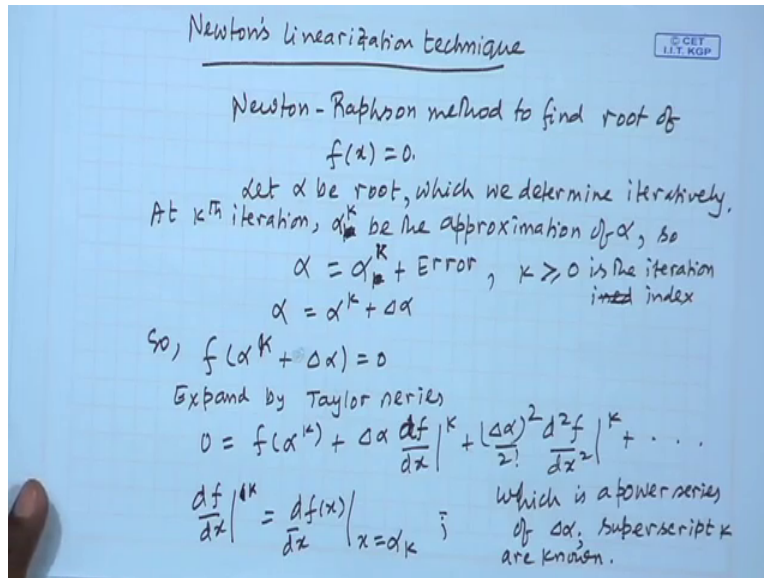 Newton's linearization technique
© CET
I.I.T. KGP
Newton-Raphson method to find root of
f(x) = 0.
Let α be root, which we determine iteratively.
At Kth iteration, α^k be the approximation of α, so
α = α^k + Error, k ≥ 0 is the iteration
index
α = α^k + Δα
So, f(α^k + Δα) = 0
Expand by Taylor series
0 = f(α^k) + Δα df/dx|^k + (Δα)^2/2! d^2f/dx^2|^k + . . . .
df/dx|^k = df(x)/dx|x=α_k ; which is a power series
of Δα; superscript k
are known.